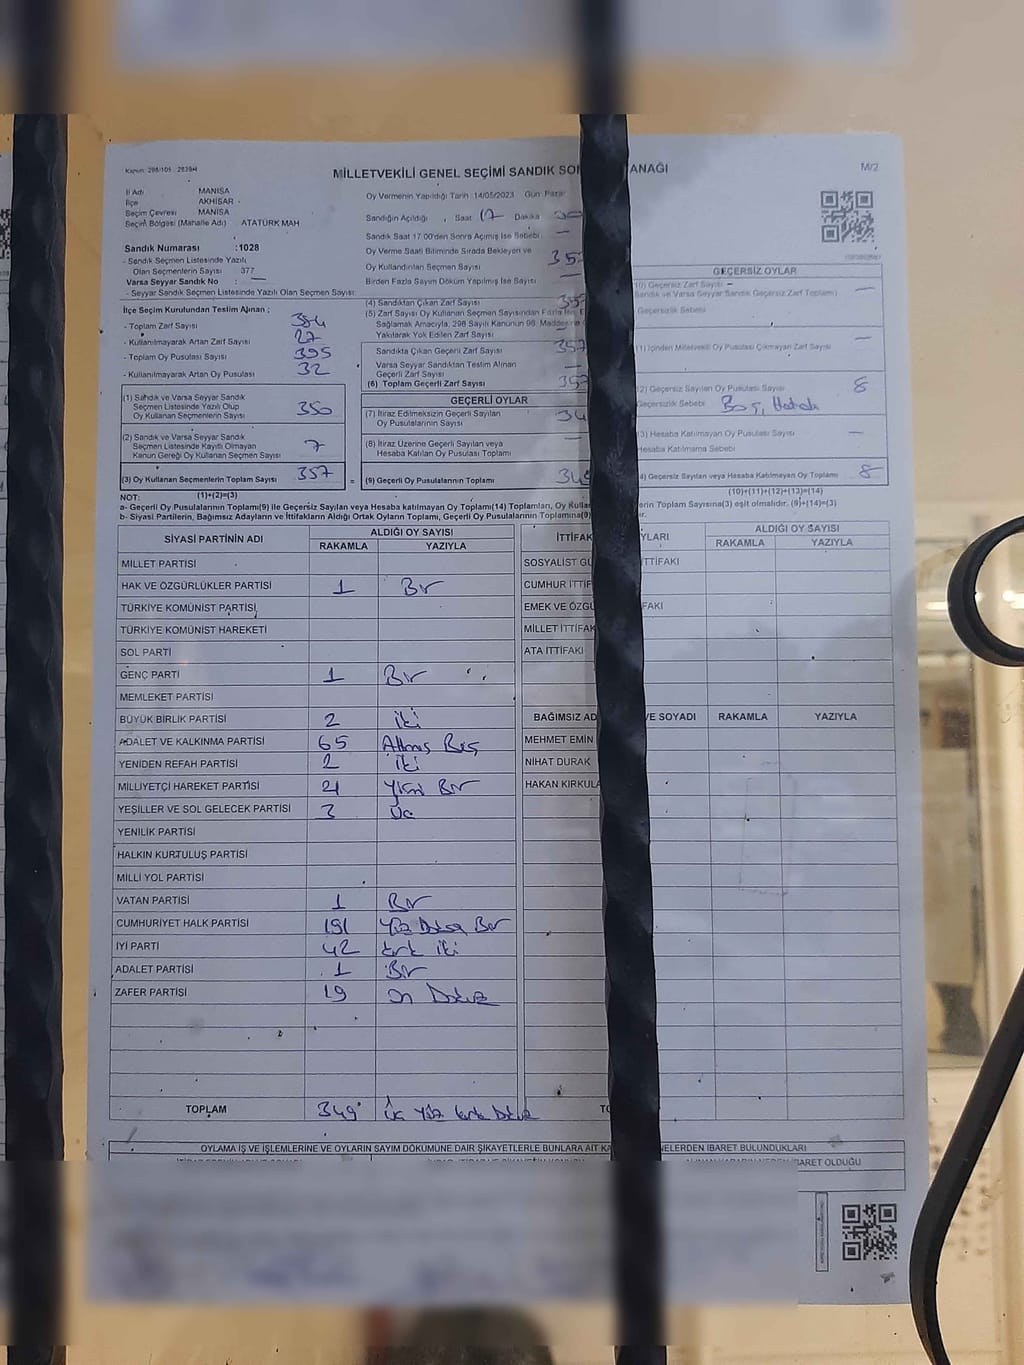 Kanun: 298/105 : 2839/4
MİLLETVEKİLİ GENEL SEÇİMİ SANDIK SO ANAĞI
M/2
İl Adı MANİSA
İlçe AKHİSAR
Seçim Çevresi MANİSA
Seçim Bölgesi (Mahalle Adı) ATATÜRK MAH
Sandık Numarası :1028
- Sandık Seçmen Listesinde Yazılı
Olan Seçmenlerin Sayısı 377
Varsa Seyyar Sandık No :
- Seyyar Sandık Seçmen Listesinde Yazılı Olan Seçmen Sayısı:
Oy Vermenin Yapıldığı Tarih :14/05/2023 Gün: Pazar
Sandığın Açıldığı , Saat 17 Dakika
Sandık Saat 17.00'den Sonra Açılmış İse Sebebi:
Oy Verme Saati Bitiminde Sırada Bekleyen ve
Oy Kullandırılan Seçmen Sayısı 357
Birden Fazla Sayım Döküm Yapılmış İse Sayısı
İlçe Seçim Kurulundan Teslim Alınan ;
- Toplam Zarf Sayısı 384
- Kullanılmayarak Artan Zarf Sayısı 27
- Toplam Oy Pusulası Sayısı 395
- Kullanılmayarak Artan Oy Pusulası 32
(1) Sandık ve Varsa Seyyar Sandık
Seçmen Listesinde Yazılı Olup
Oy Kullanan Seçmenlerin Sayısı 350
(2) Sandık ve Varsa Seyyar Sandık
Seçmen Listesinde Kayıtlı Olmayan
Kanun Gereği Oy Kullanan Seçmen Sayısı 7
(3) Oy Kullanan Seçmenlerin Toplam Sayısı 357 =
(4) Sandıktan Çıkan Zarf Sayısı 357
(5) Zarf Sayısı Oy Kullanan Seçmen Sayısından Fazla İse, E
Sağlamak Amacıyla, 298 Sayılı Kanunun 98. Maddesine
Yakılarak Yok Edilen Zarf Sayısı
Sandıkta Çıkan Geçerli Zarf Sayısı 357
Varsa Seyyar Sandıktan Teslim Alınan
Geçerli Zarf Sayısı
(6) Toplam Geçerli Zarf Sayısı 357
GEÇERLİ OYLAR
(7) İtiraz Edilmeksizin Geçerli Sayılan
Oy Pusulalarının Sayısı 34
(8) İtiraz Üzerine Geçerli Sayılan veya
Hesaba Katılan Oy Pusulası Toplamı
(9) Geçerli Oy Pusulalarının Toplamı 349
GEÇERSİZ OYLAR
10) Geçersiz Zarf Sayısı
Sandık ve Varsa Seyyar Sandık Geçersiz Zarf Toplamı)
Geçersizlik Sebebi
1) İçinden Milletvekili Oy Pusulası Çıkmayan Zarf Sayısı
2) Geçersiz Sayılan Oy Pusulası Sayısı 8
Geçersizlik Sebebi Boş, Hatalı
3) Hesaba Katılmayan Oy Pusulası Sayısı
Hesaba Katılmama Sebebi
4) Geçersiz Sayılan veya Hesaba Katılmayan Oy Toplamı 8
NOT: (1)+(2)=(3) (10)+(11)+(12)+(13)=(14)
a- Geçerli Oy Pusulalarının Toplamı(9) ile Geçersiz Sayılan veya Hesaba katılmayan Oy Toplamı(14) Toplamları, Oy Kullan erin Toplam Sayısına(3) eşit olmalıdır. (9)+(14)=(3)
b- Siyasi Partilerin, Bağımsız Adayların ve İttifakların Aldığı Ortak Oyların Toplamı, Geçerli Oy Pusulalarının Toplamına(9) r.
SİYASİ PARTİNİN ADI ALDIĞI OY SAYISI
RAKAMLA YAZIYLA
MİLLET PARTİSİ
HAK VE ÖZGÜRLÜKLER PARTİSİ 1 Bir
TÜRKİYE KOMÜNİST PARTİSİ
TÜRKİYE KOMÜNİST HAREKETİ
SOL PARTİ
GENÇ PARTİ 1 Bir
MEMLEKET PARTİSİ
BÜYÜK BİRLİK PARTİSİ 2 iki
ADALET VE KALKINMA PARTİSİ 65 Altmış Beş
YENİDEN REFAH PARTİSİ 2 iki
MİLLİYETÇİ HAREKET PARTİSİ 21 Yirmi Bir
YEŞİLLER VE SOL GELECEK PARTİSİ 3 Üç
YENİLİK PARTİSİ
HALKIN KURTULUŞ PARTİSİ
MİLLİ YOL PARTİSİ
VATAN PARTİSİ 1 Bir
CUMHURİYET HALK PARTİSİ 191 Yüz Doksan Bir
İYİ PARTİ 42 kırk iki
ADALET PARTİSİ 1 Bir
ZAFER PARTİSİ 19 On Dokuz
TOPLAM 349 Üç Yüz kırk Dokuz
İTTİFAK YLARI ALDIĞI OY SAYISI
RAKAMLA YAZIYLA
SOSYALİST GÜ İTTİFAKI
CUMHUR İTTİF
EMEK VE ÖZGÜ FAKI
MİLLET İTTİFAK
ATA İTTİFAKI
BAĞIMSIZ AD VE SOYADI RAKAMLA YAZIYLA
MEHMET EMİN
NİHAT DURAK
HAKAN KIRKULA
TO
OYLAMA İŞ VE İŞLEMLERİNE VE OYLARIN SAYIM DÖKÜMÜNE DAİR ŞİKAYETLERLE BUNLARA AİT KA NELERDEN İBARET BULUNDUKLARI
BARET OLDUĞU